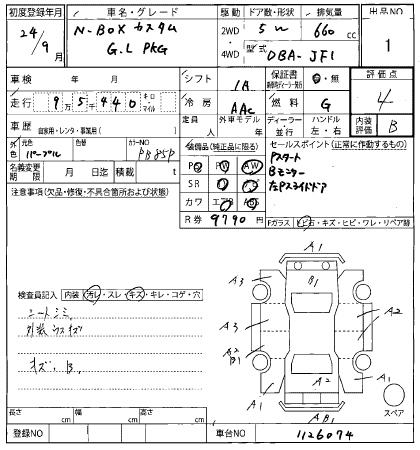 初度登録年月 車名・グレード 駆動 ドア数・形状 排気量 出品NO
24/9月 N-BOX カスタム G.L PKG 2WD・4WD 5 660 cc 1
型式 DBA-JF1
車検 年 月 シフト IA 保証書 有・無 評価点
走行 95440 キロ・マイル 冷房 AAC 燃料 G 4
車歴 自家用・レンタ・事業用( ) 定員 人 外車モデル 年 ディーラー・並行 ハンドル 左・右 内装評価 B
外色 元色 パープル 色替 カラーNO PB85P 装備品(純正品に限る) セールスポイント(正常に作動するもの)
名義変更期限 月 日迄 積載 t PS PW AW Pスタート
注意事項(欠品・修復・不具合箇所および状態) SR ナビ TV Bモニター
カワ エアB ABS 左Pスライドドア
R券 9790 円 Fガラス 飛石・キズ・ヒビ・ワレ・リペア替
A1
B1
A3
A3 A2
検査員記入 内装 汚レ・スレ・キズ・キレ・コゲ・穴
シートシミ
外装ウスキズ
A2 B1
キズ、B、
A2
A1 A1
AB1
スペア
長さ cm 幅 cm 高さ cm
登録NO 車台NO 1126074